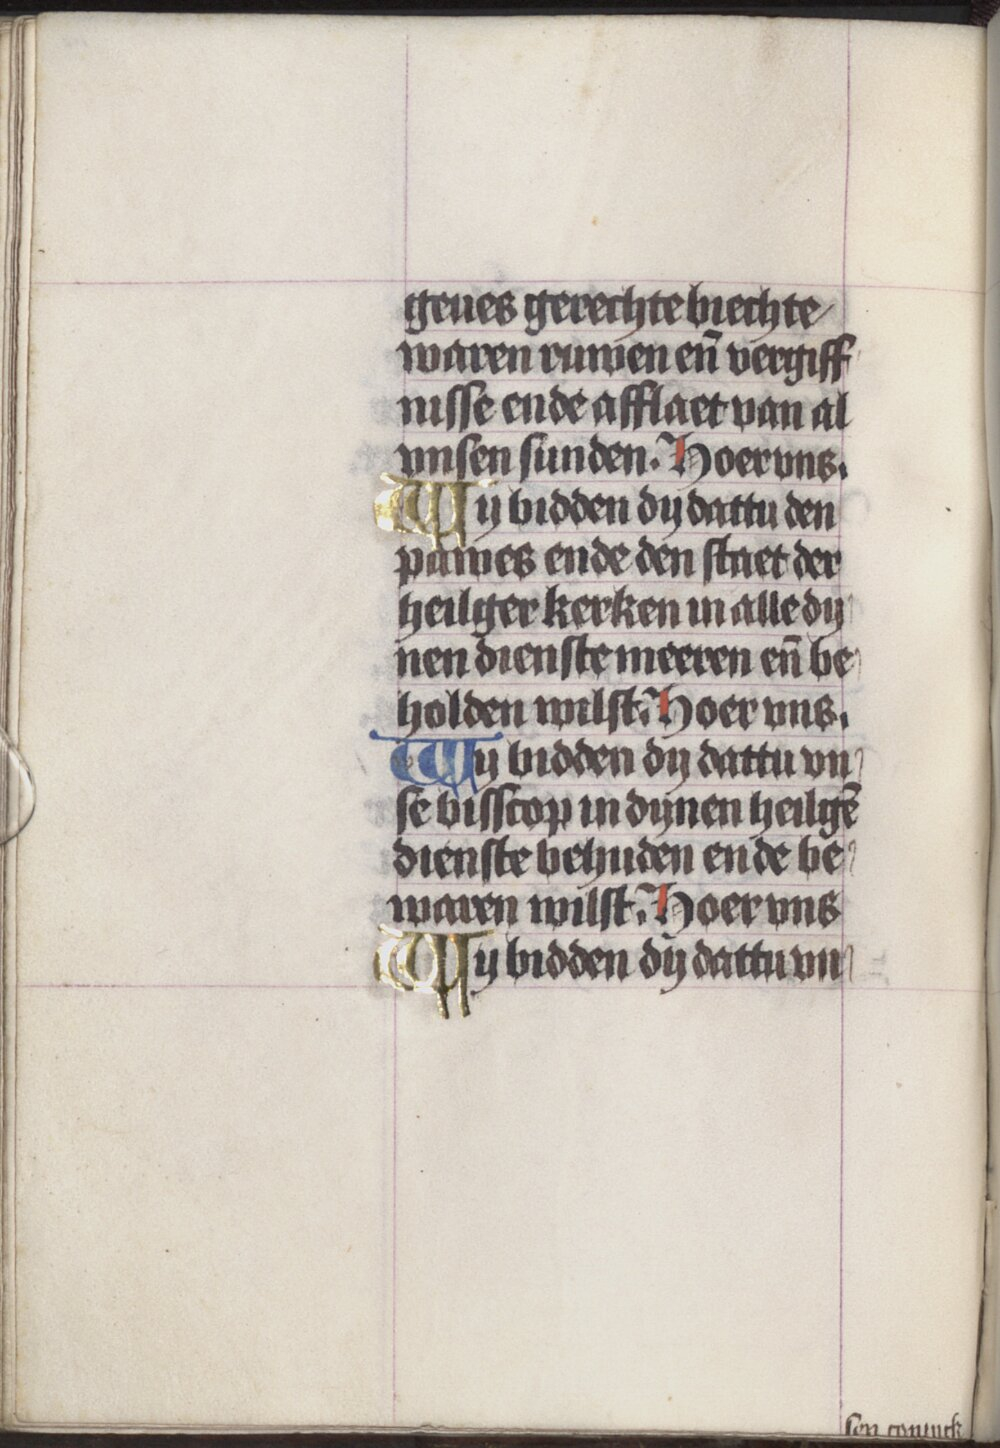 geues gerechte biechte/
waren ruwen eñ vergiff
nisse ende afflaet van al
vnsen sunden. Hoer vns.
Wy bidden dy dattu den
pawes ende den staet der
heilger kerken in alle dy
nen dienste meeren eñ be
holden wilst. Hoer vns.
Wy bidden dy dattu vn
se bisscop in dynen heilgē
dienste behuden ende be
waren wilst. Hoer vns
Wy bidden dy dattu vn
sen coninck